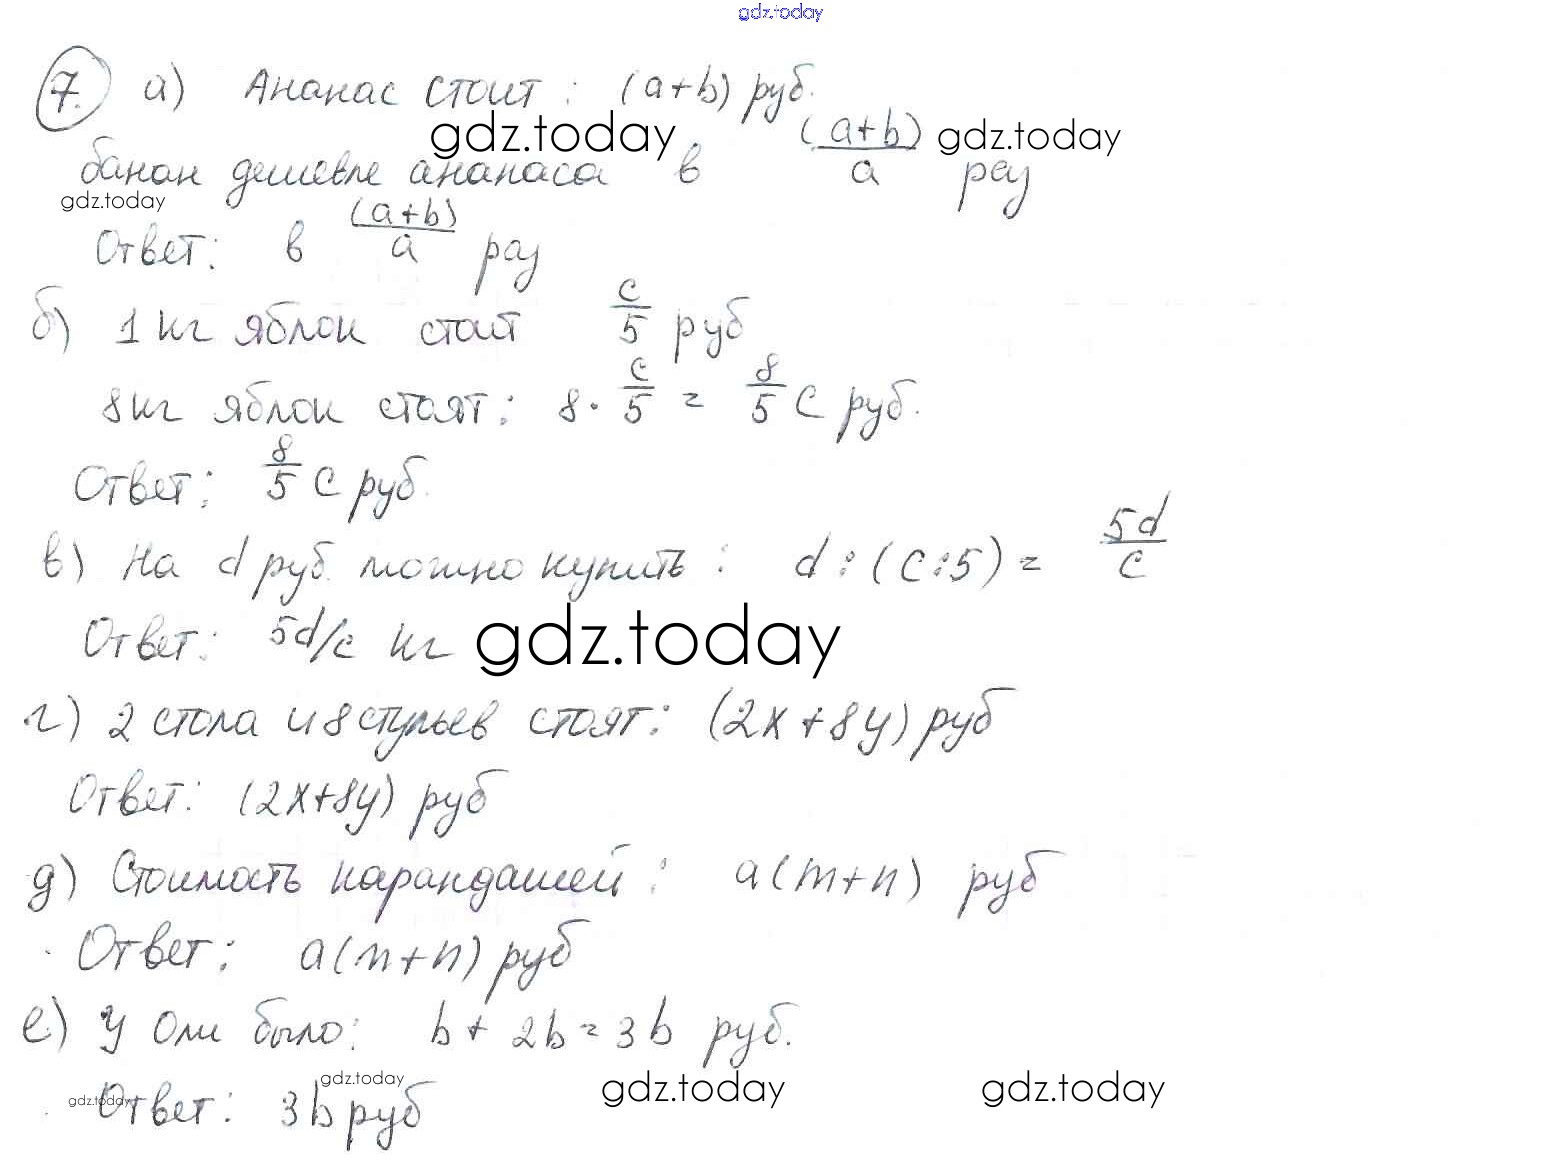 gdz.today
7. а) Ананас стоит: (a+b) руб.
gdz.today
банан дешевле ананаса в (a+b)/a раз gdz.today
gdz.today
Ответ: в (a+b)/a раз
б) 1 кг яблок стоит c/5 руб
8 кг яблок стоят: 8 · c/5 = 8/5 c руб.
Ответ: 8/5 c руб.
в) На d руб. можно купить: d : (c:5) = 5d/c
Ответ: 5d/c кг gdz.today
г) 2 стола и 8 стульев стоят: (2x+8y) руб
Ответ: (2x+8y) руб
д) Стоимость карандашей: a(m+n) руб
Ответ: a(m+n) руб
е) У Оли было: b + 2b = 3b руб.
gdz.today gdz.today gdz.today
gdz.today
Ответ: 3b руб